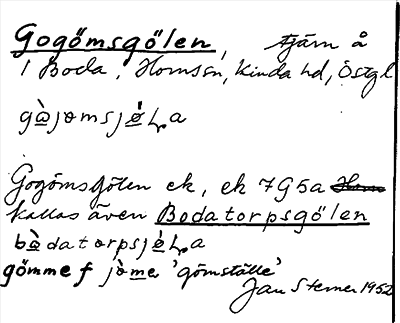 Gogömsgölen, tjärn å
1 Boda, Homssn, Kinda hd, Östgl
gàjomsjǿLa
Gogömsgölen ek, ek 7G5a
kallas även Bodatorpsgölen
bàdatorpsjǿLa
gömme f jòme 'gömställe'
Jan Sterner 1952